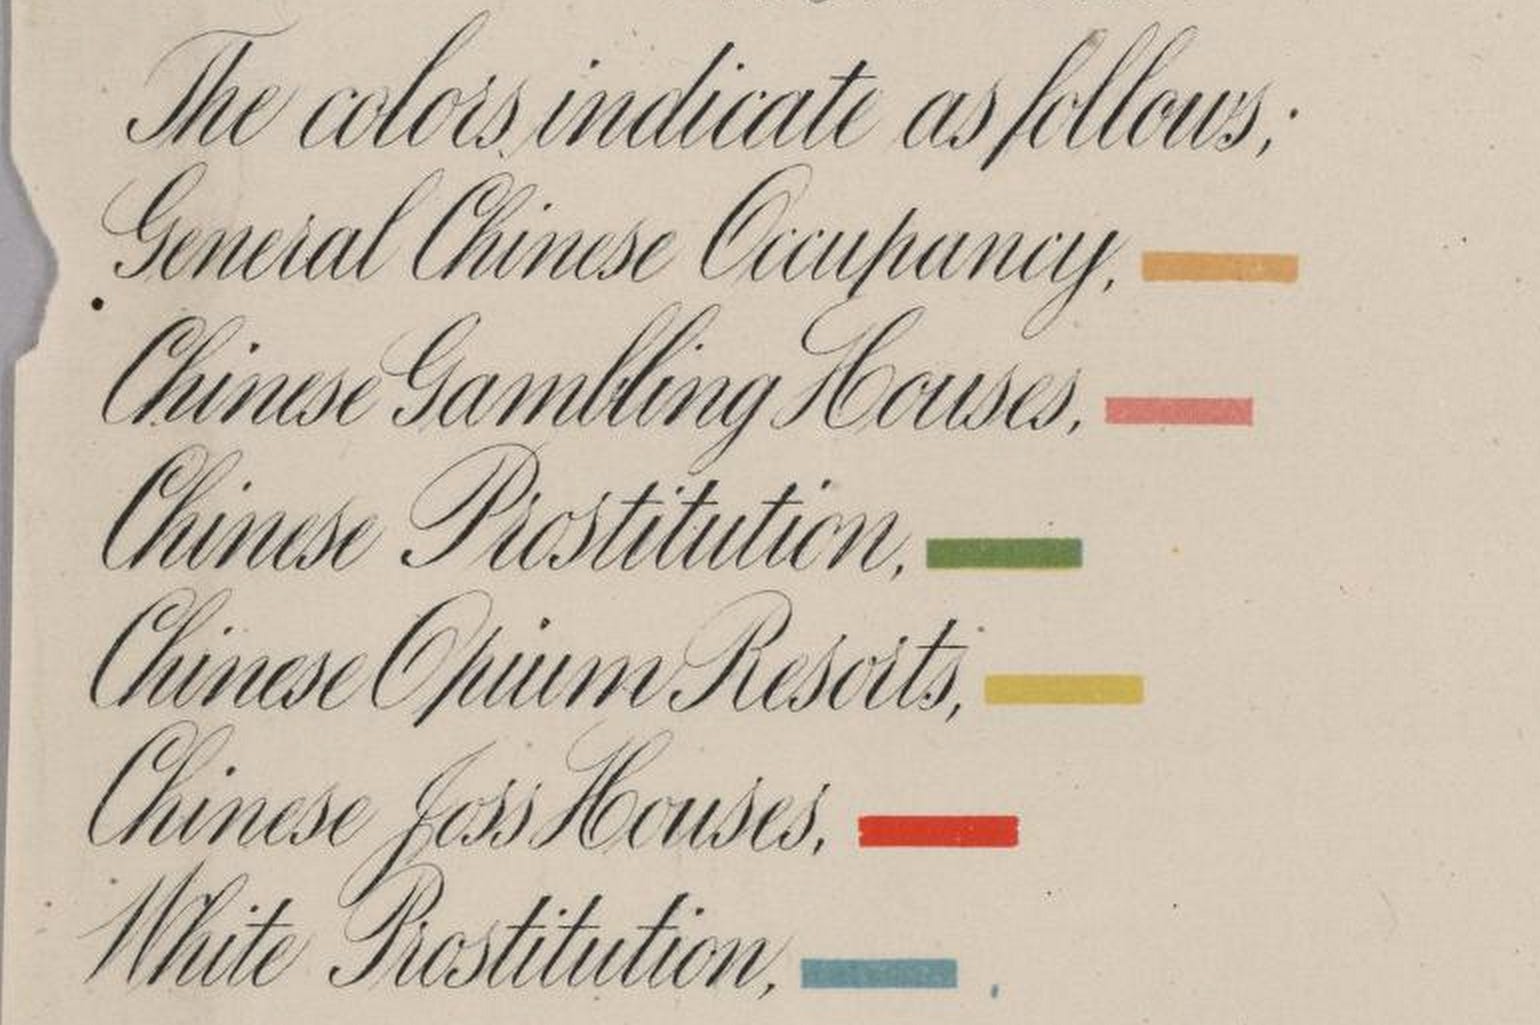 The colors indicate as follows;
General Chinese Occupancy,
Chinese Gambling Houses,
Chinese Prostitution,
Chinese Opium Resorts,
Chinese Joss Houses,
White Prostitution,